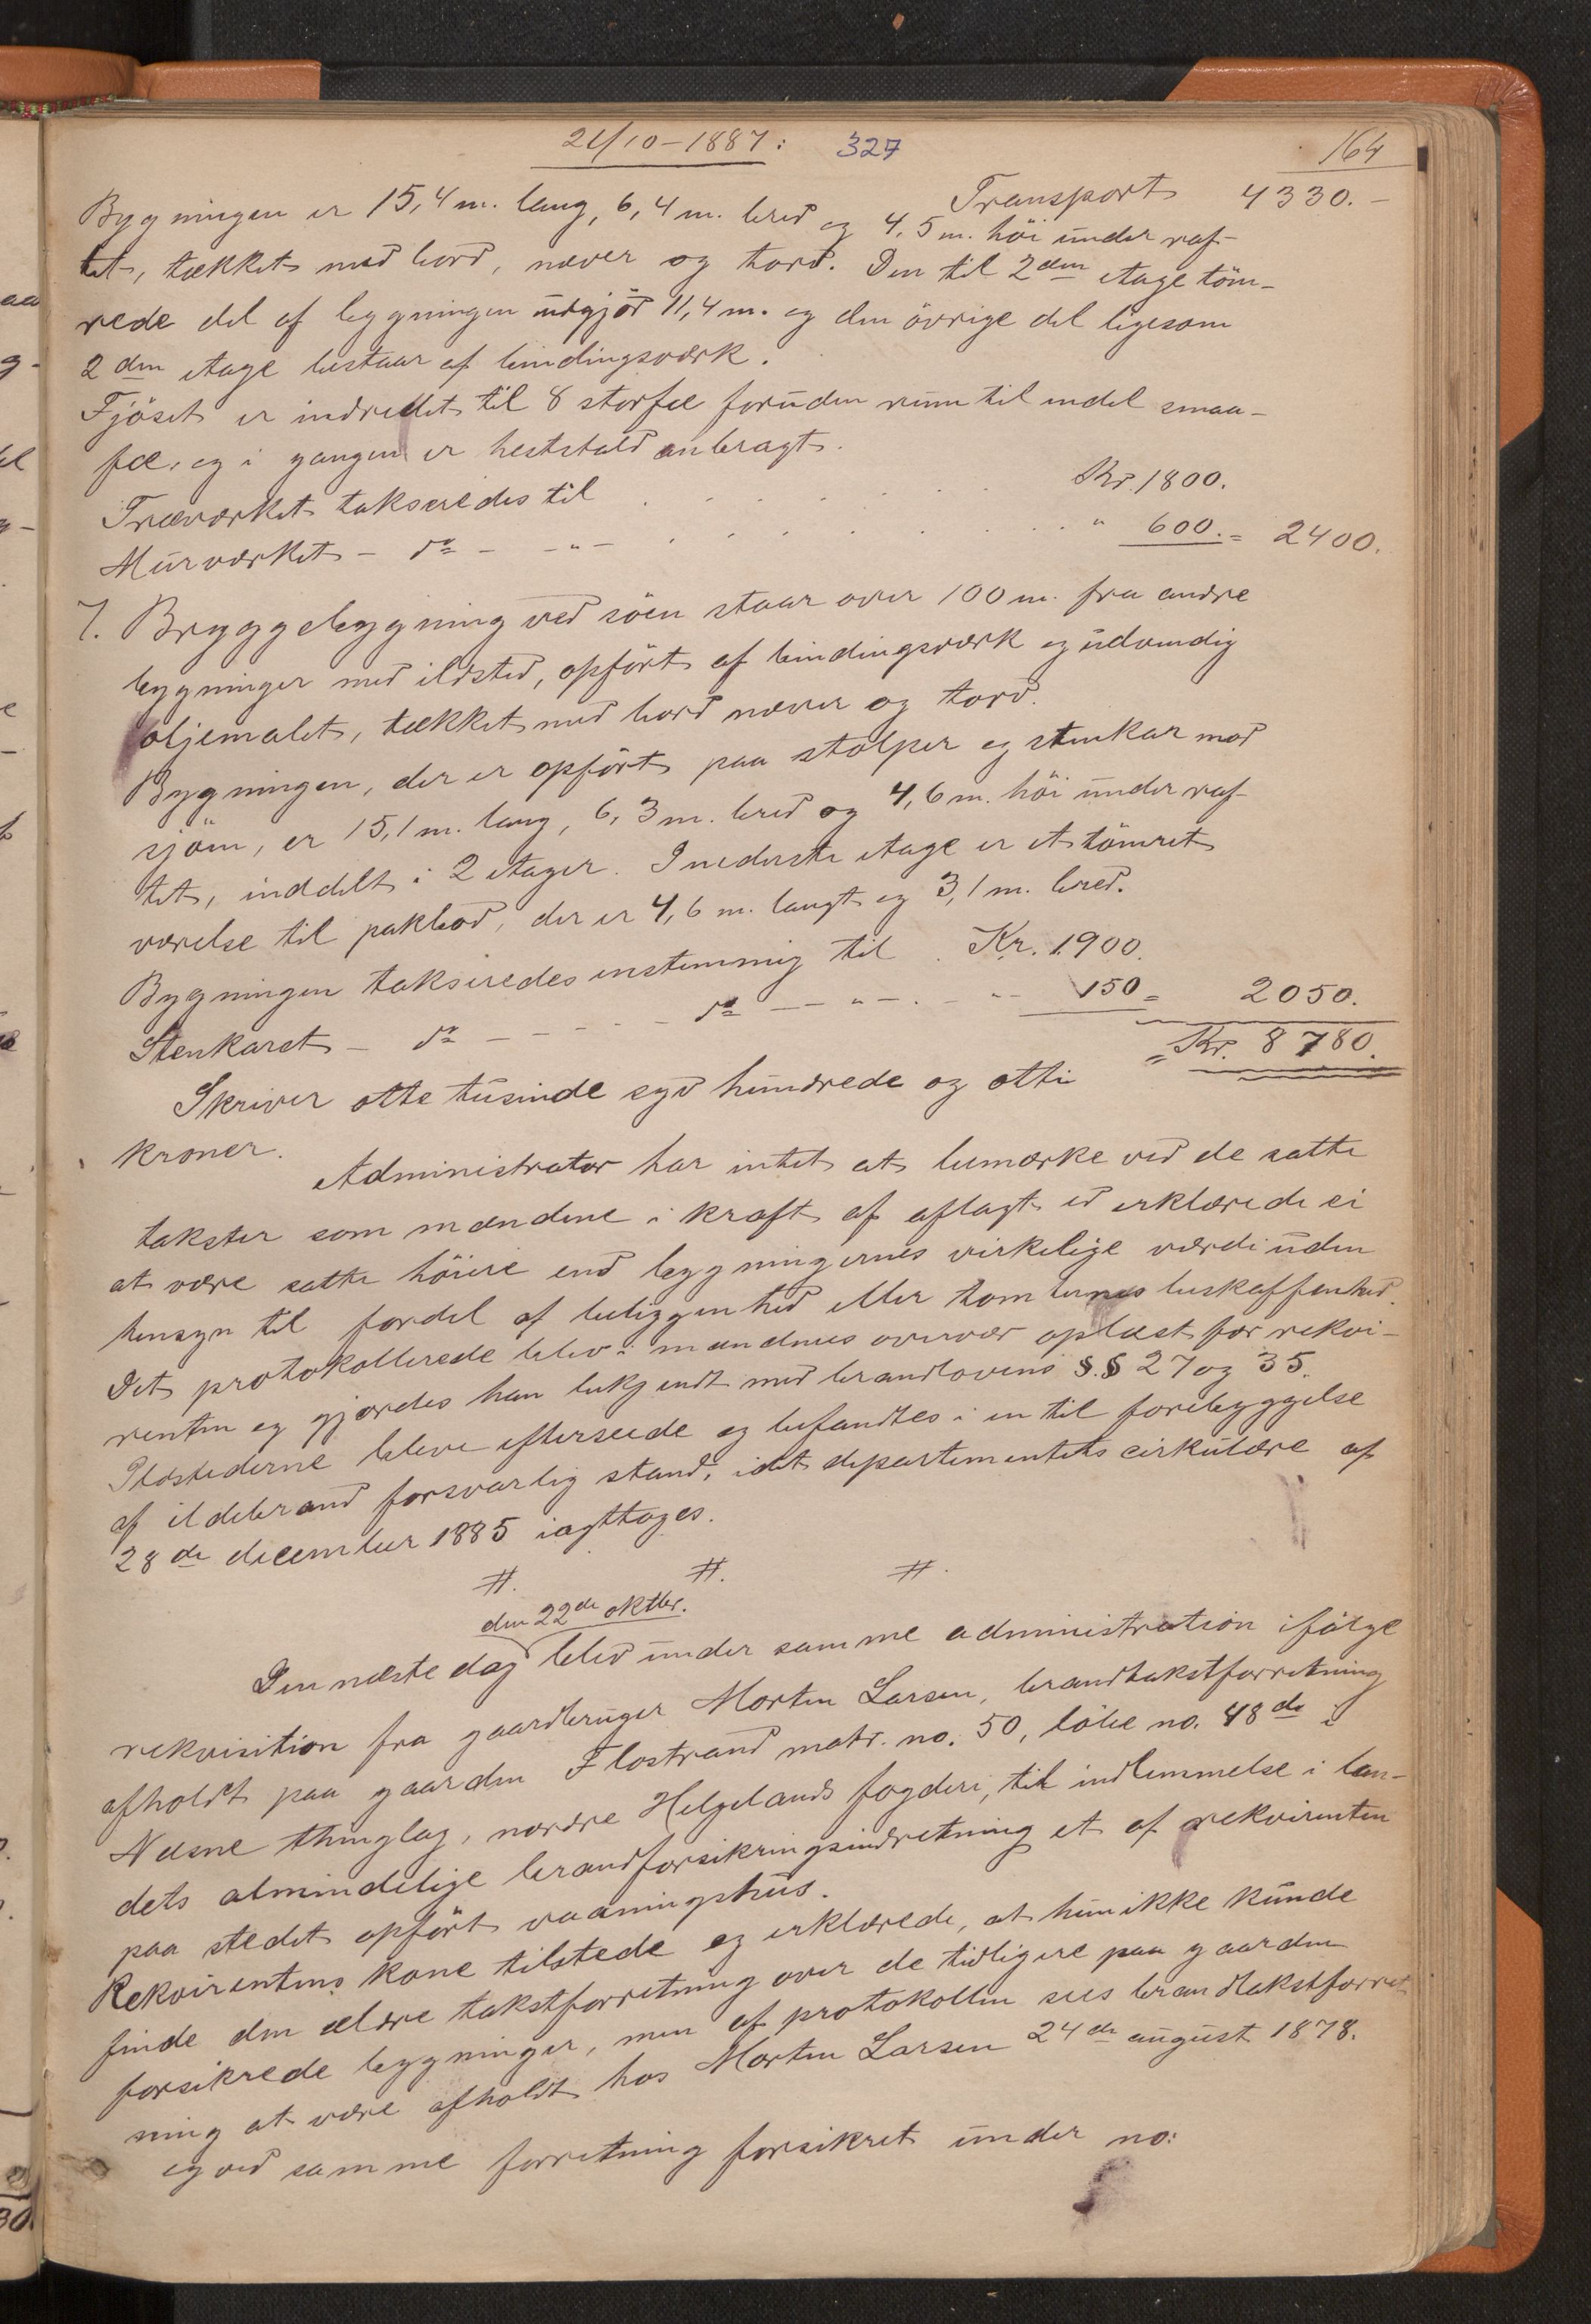 21/10-1887: 327 164
Transport 4330.-
Bygningen er 15,4 m. lang, 6,4 m. bred og 4,5 m. höi under raf-
tet, tækket med bord, næver og torv. Den til 2den etage töm-
rede del af bygningen udgjör 11,4 m. og den övrige del ligesom
2den etage bestaar af bindingsværk.
Fjöset er indredet til 8 storfæ foruden rum til endel smaa-
fæ, og i gangen er heststald anbragt.
Træværket takseredes til . . . . . . Kr. 1800.
Murværket - do - - " - . . . . . . . " 600. = 2400.
7. Bryggebygning ved söen staar over 100 m. fra andre
bygninger med ildsted, opfört af bindingsværk og udvendig
oljemalet, tækket med bord næver og torv.
Bygningen, der er opfört paa stolper og stenkar mod
sjöen, er 15,1 m. lang, 6,3 m. bred og 4,6 m. höi under raf-
tet, inddelt i 2 etager. I nederste etage er et tömret
værelse til pakbod, der er 4,6 m. langt og 3,1 m. bred.
Bygningen takseredes enstemmig til . Kr. 1900.
Stenkaret - do - - - - do - - " - . - " - 150 = 2050.
= Kr. 8780.
Skriver otte tusinde syv hundrede og otti
kroner.
Administrator har intet at bemærke ved de satte
takster som mændene i kraft af aflagt ed erklærede ei
at være satte höiere end bygningernes virkelige værdi uden
hensyn til fordel af beliggenhed eller tomternes beskaffenhed.
Det protokollerede blev i mændenes overvær oplæst for rekvi-
renten og gjordes han bekjendt med brandlovens §.§ 27 og 35.
Ildstederne bleve efterseede og befandtes i en til forebyggelse
af ildebrand forsvarlig stand, idet departementets cirkulære af
28de december 1885 iagttoges.
#. #. #.
den 22de oktbr.
Den næste dag blev under samme administration ifölge
rekvisition fra gaardbruger Morten Larsen, brandtakstforretning
afholdt paa gaarden Flostrand matr. no. 50, löbe no. 48de i
Næsne thinglag, nordre Helgelands fogderi, til indlemmelse i lan-
dets almindelige brandforsikringsindretning et af rekvirenten
paa stedet opfört vaaningshus.
Rekvirentens kone tilstede og erklærede, at hun ikke kunde
finde den ældre takstforretning over de tidligere paa gaarden
forsikrede bygninger, men af protokollen sees brandtakstforret-
ning at være afholdt hos Morten Larsen 24de august 1878.
og ved samme forretning forsikret under no: